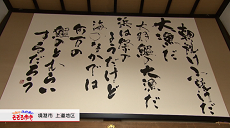 朝焼け小焼だ
大漁だ
大羽鰮の大漁だ
浜は祭りの
ようだけど
海のなかでは
何万の
鰮のとむらい
するだろう
境港市 上道地区